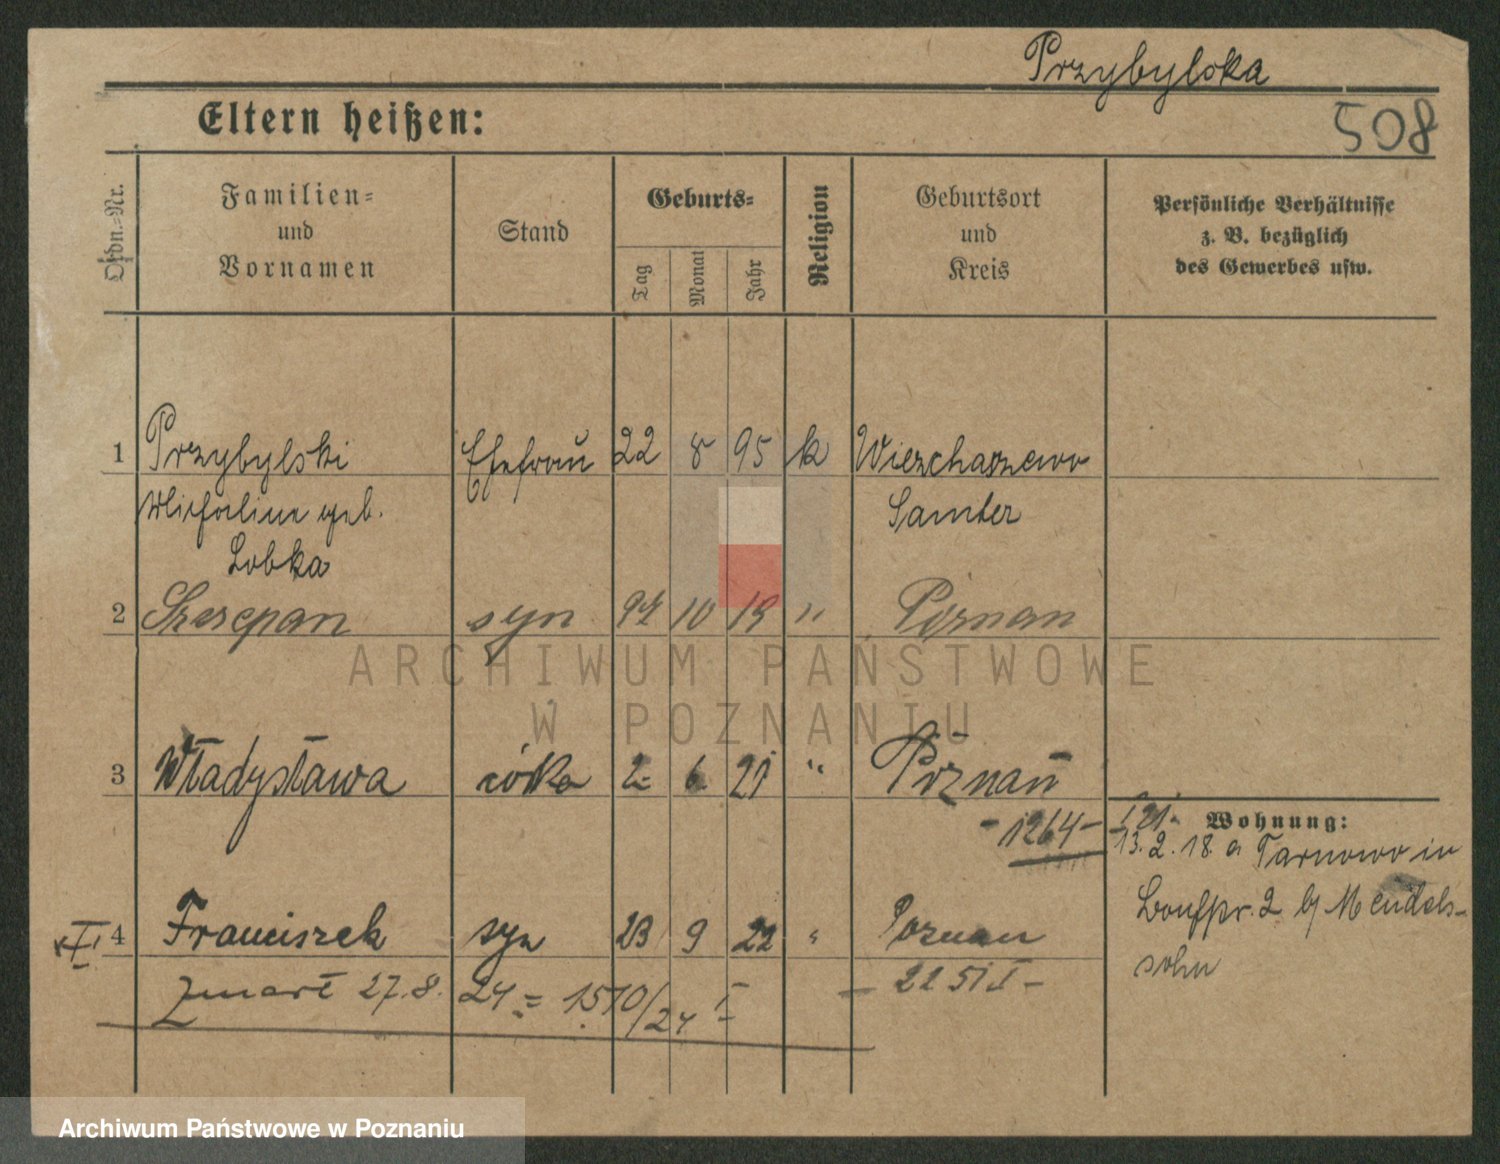 Przybylska
508
Eltern heißen:
Ordn.=Nr.
Familien=
und
Vornamen
Stand
Geburts=
Tag
Monat
Jahr
Religion
Geburtsort
und
Kreis
Persönliche Verhältnisse
z. B. bezüglich
des Gewerbes usw.
1 Przybylski Ehefrau 22 8 95 k
geb. Samter
Lobka
2 Szczepan syn 10 19 " Poznan
ARCHIWUM PAŃSTWOWE
W POZNANIU
3 Władysława córka 2 6 21 " Poznań
-1264-
Wohnung:
13.2.18. a Tarnowo in
2 bj Mendels-
sohn
4 Franciszek syn 23 9 22 " Poznan
zmarł 27.8. 24 = 1510/24 I
Archiwum Państwowe w Poznaniu